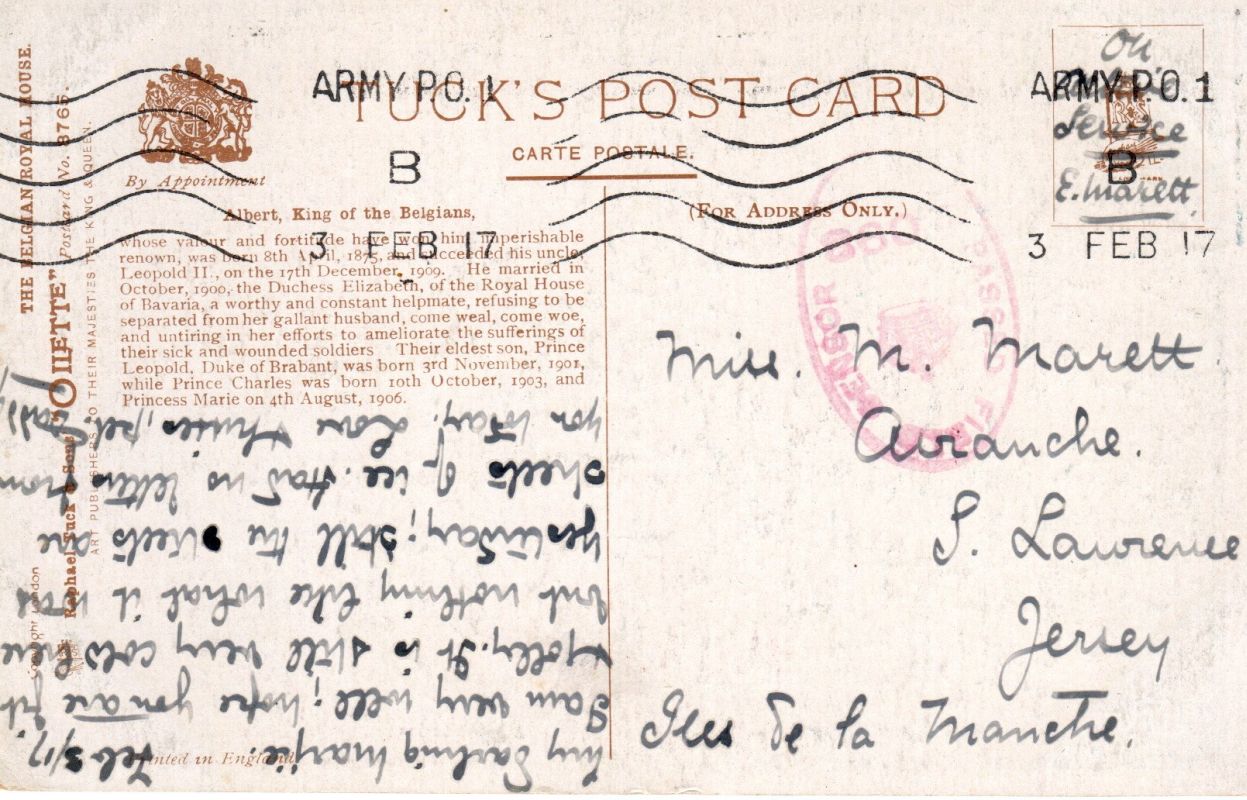 THE BELGIAN ROYAL HOUSE.
Raphael Tuck & Sons' "OILETTE" Postcard No. 8765.
ART PUBLISHERS TO THEIR MAJESTIES THE KING & QUEEN.
Copyright London
By Appointment
TUCK'S POST CARD
CARTE POSTALE.
(FOR ADDRESS ONLY.)
ARMY P.O. 1
B
3 FEB 17
ARMY P.O. 1
B
3 FEB 17
On
Service
E. Marett.
Albert, King of the Belgians,
whose valour and fortitude have won him imperishable
renown, was born 8th April, 1875, and succeeded his uncle,
Leopold II., on the 17th December, 1909. He married in
October, 1900, the Duchess Elizabeth, of the Royal House
of Bavaria, a worthy and constant helpmate, refusing to be
separated from her gallant husband, come weal, come woe,
and untiring in her efforts to ameliorate the sufferings of
their sick and wounded soldiers Their eldest son, Prince
Leopold, Duke of Brabant, was born 3rd November, 1901,
while Prince Charles was born 10th October, 1903, and
Princess Marie on 4th August, 1906.
PASSED FIELD CENSOR
Miss. M. Marett.
Avranche.
S. Lawrence
Jersey
Iles de la Manche.
Feb 3/17.
My darling Marjie.
I am very well; hope you are fit &
jolly. It is still very cold here
but nothing like what it was
yesterday; still the streets are
sheets of ice. Had no letter from
you today. Love & kisses, pet, Dad
Printed in England